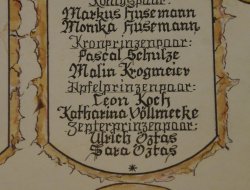 Königspaar:
Markus Husemann
Monika Husemann
Kronprinzenpaar:
Pascal Schulze
Malin Krogmeier
Apfelprinzenpaar:
Leon Koch
Katharina Vollmecke
Zepterprinzenpaar:
Ulrich Oztas
Sara Oztas